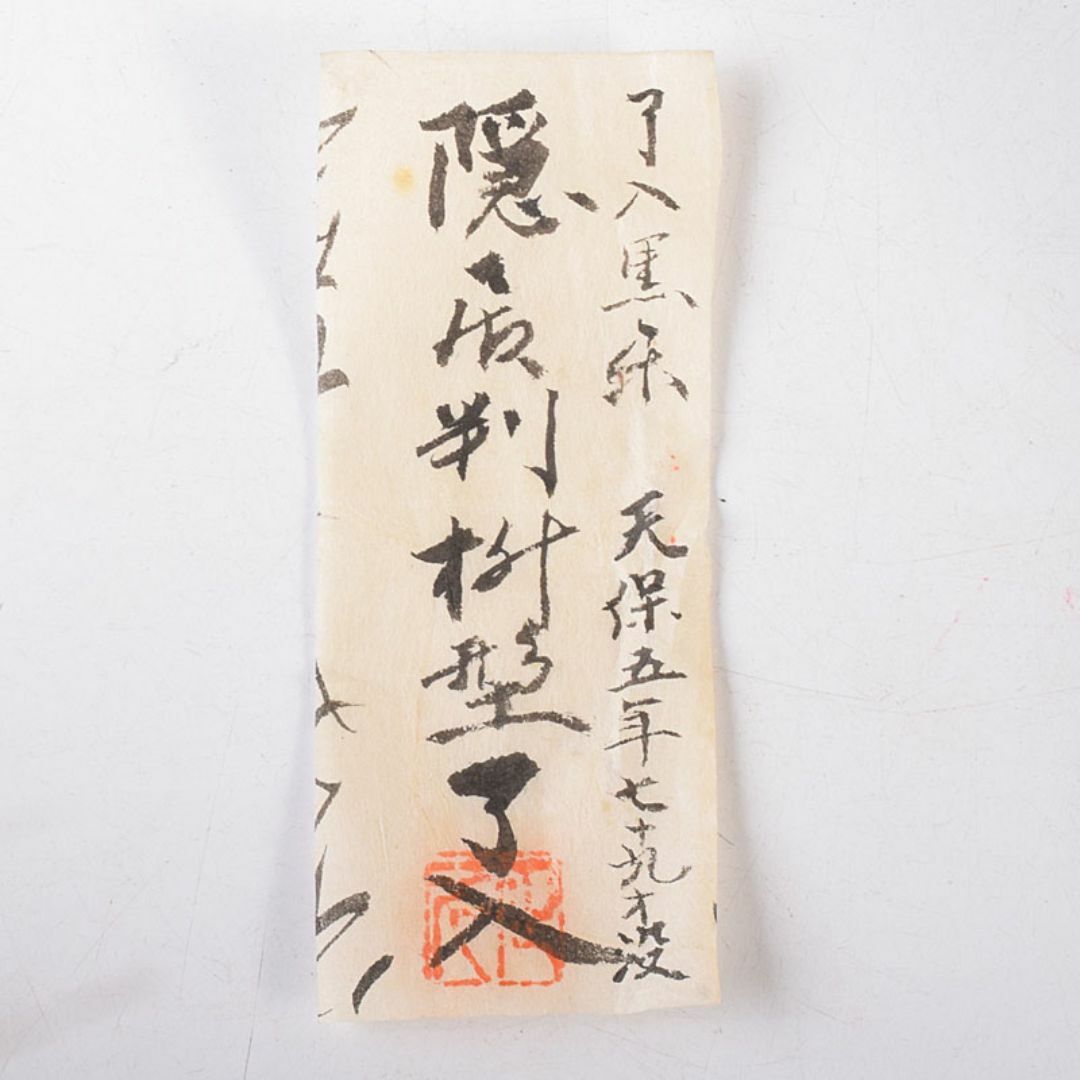 了入黒楽 天保五年七十九才没
隠居判桝型了入